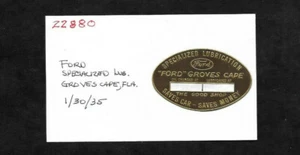 22880
FORD
SPECIALIZED LUB.
GROVES CAPE, FLA.
1/30/35
SPECIALIZED LUBRICATION
Ford
"FORD" GROVES CAPE
THE GOOD SHOP
SAVES CAR - SAVES MONEY